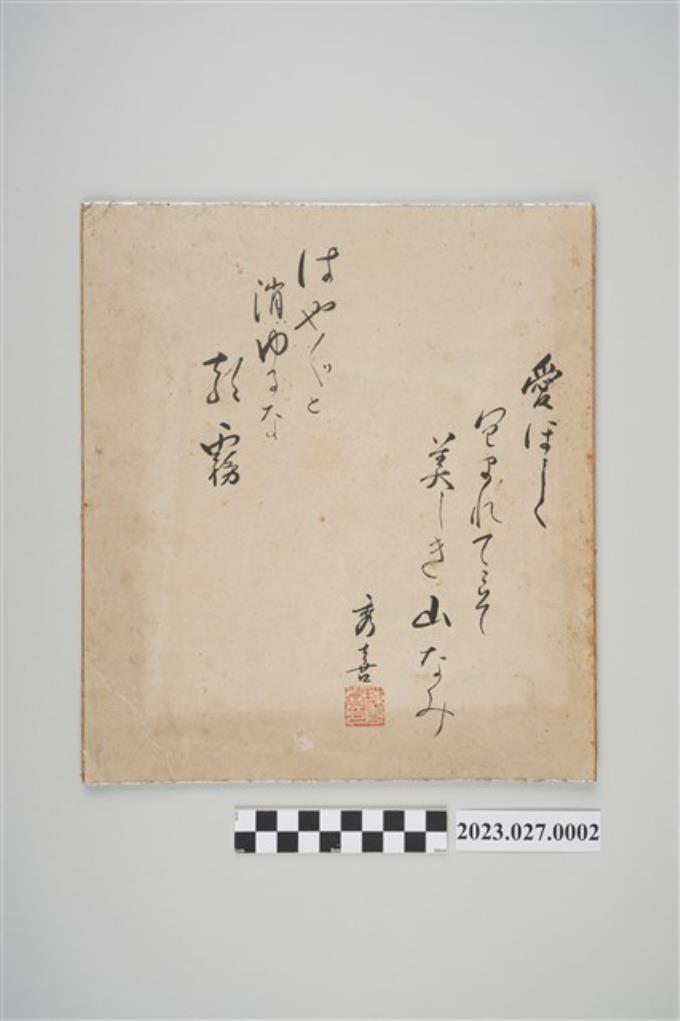 愛ほしく
包まれてこそ
美しき山なみ
はや〲と
消ゆるな
朝霧
秀喜
2023.027.0002